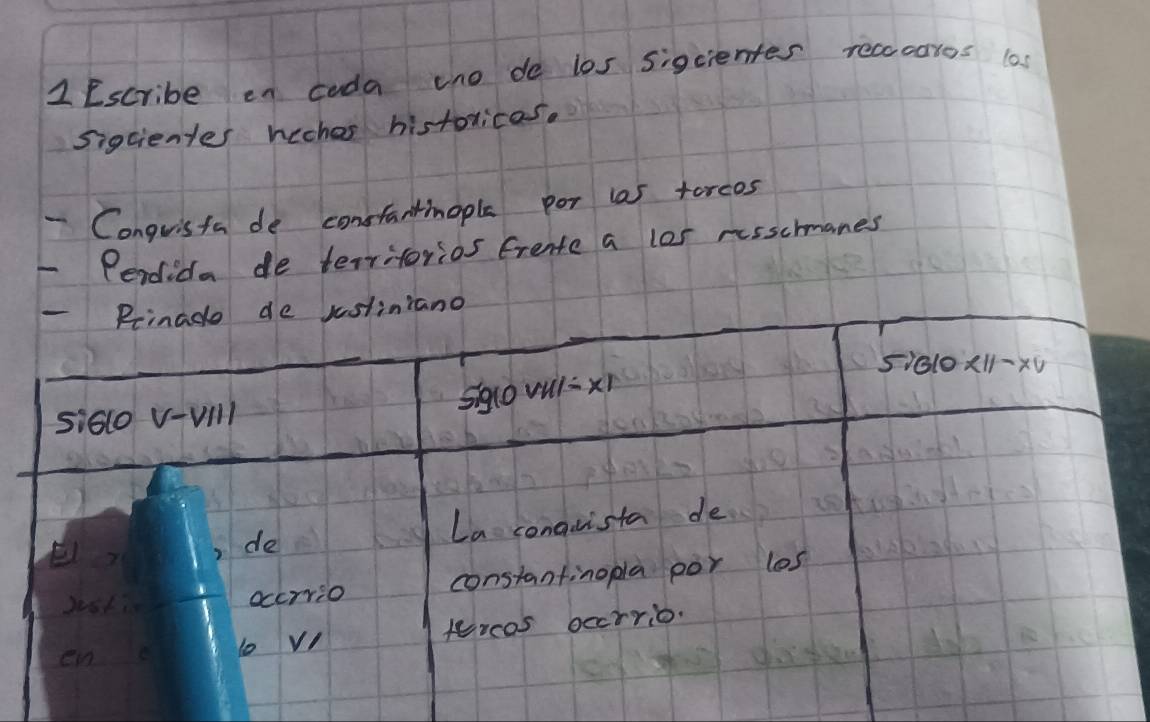 1 Escribe en cada uno de los siguientes recuadros los
siguientes hechos historicos.
- Conquista de constantinopla por los turcos
- Perdida de territorios frente a los musulmanes
- Reinado de justiniano
siglo V-VIII
siglo VIII-XI
siglo XII-XV
El de
occrrio
en lo VI
La conquista de
constantinopla por los
turcos occrrio.